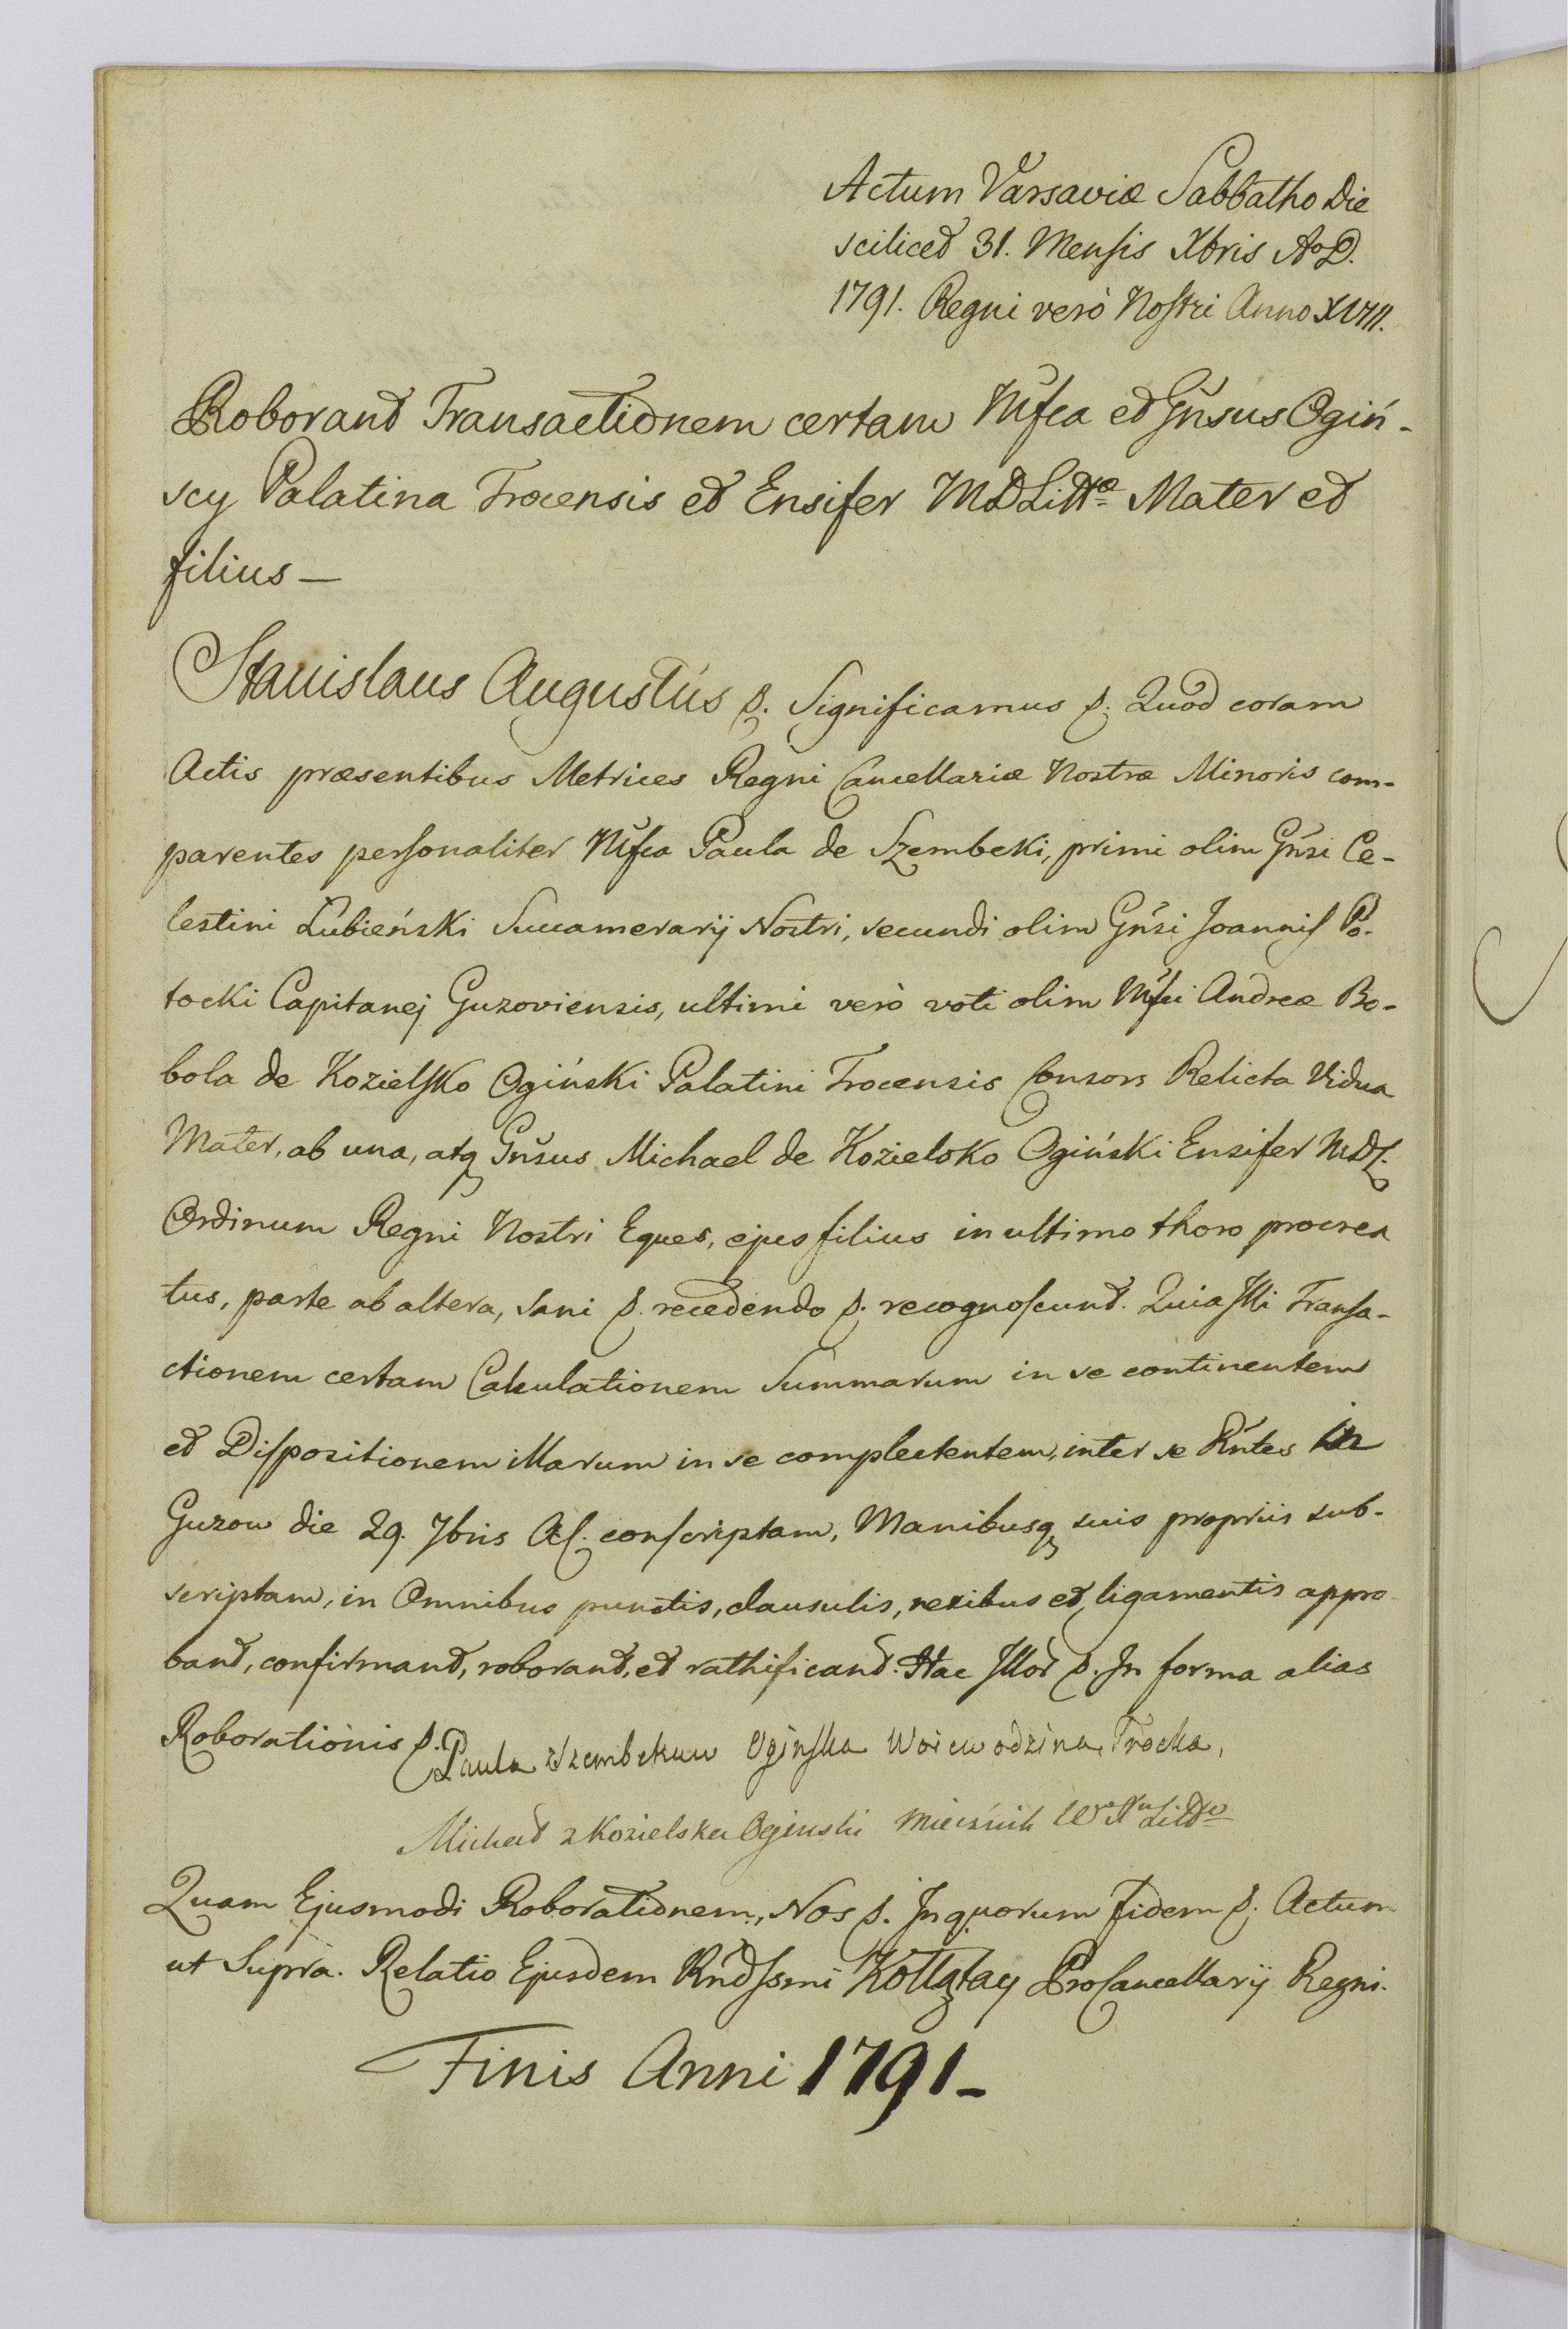 Actum Varsaviæ Sabbatho Die
scilicet 31. Mensis Xbris AoD.
1791. Regni verò Nostri Anno XVIII.
Roborant Transactionem certam Mfca et Gnsus Ogiń-
scy Palatina Trocensis et Ensifer MDLittæ Mater et
filius —
Stanislaus Augustus p. Significamus p. Quod coram
Actis præsentibus Metrices Regni Cancellariæ Nostræ Minoris com-
parentes personaliter Mfca Paula de Szembeki, primi olim Gnsi Ce-
lestini Łubieński Succamerarij Nostri, secundi olim Gnsi Joannis Po-
tocki Capitanej Guzoviensis, ultimi verò voti olim Mfci Andreæ Bo-
bola de Kozielsko Ogiński Palatini Trocensis Consors Relicta Vidua
Mater, ab una, atq Gnsus Michael de Kozielsko Ogiński Ensifer MDL.
Ordinum Regni Nostri Eques, ejus filius in ultimo thoro procrea
tus, parte ab altera, sani p. recedendo p. recognoscunt. Quia Illi Transa-
ctionem certam Calculationem Summarum in se continentem
et Dispositionem illarum in se complectentem, inter se Rntes in
Guzow die 29. 7bris A conscriptam, Manibusq suis propriis sub-
scriptam, in Omnibus punctis, clausulis, nexibus et ligamentis appro
bant, confirmant, roborant, et rathificant. Hac Illor p. In forma alias
Roborationis p. Paula z Szembekuw Oginska Woiewodzina Trocka,
Michał z Kozielska Oginski Miecznik Litto
Quam Ejusmodi Roborationem, Nos p. In quorum fidem p. Actum
ut Supra. Relatio Ejusdem Rndssmi Kołłątay ProCancellarij Regni.
Finis Anni 1791 –